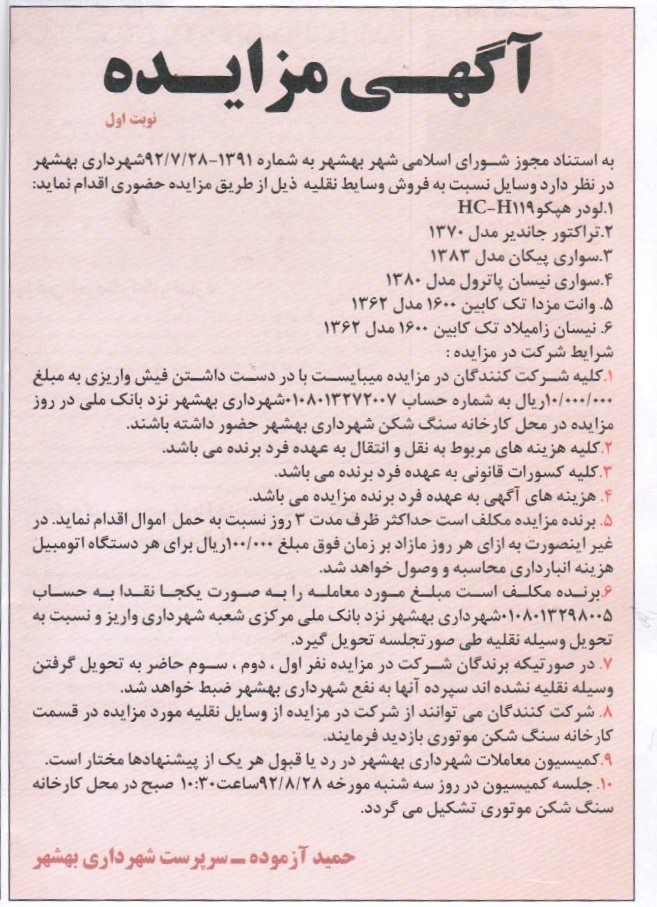 آگهی مزایده
نوبت اول
به استناد مجوز شورای اسلامی شهر بهشهر به شماره ۱۳۹۱-۹۲/۷/۲۸شهرداری بهشهر
در نظر دارد وسایل نسبت به فروش وسایط نقلیه ذیل از طریق مزایده حضوری اقدام نماید:
۱.لودر هپکوHC-H۱۱۹
۲.تراکتور جاندیر مدل ۱۳۷۰
۳.سواری پیکان مدل ۱۳۸۳
۴.سواری نیسان پاترول مدل ۱۳۸۰
۵. وانت مزدا تک کابین ۱۶۰۰ مدل ۱۳۶۲
۶. نیسان زامیلاد تک کابین ۱۶۰۰ مدل ۱۳۶۲
شرایط شرکت در مزایده :
۱.کلیه شرکت کنندگان در مزایده میبایست با در دست داشتن فیش واریزی به مبلغ
۱۰/۰۰۰/۰۰۰ریال به شماره حساب ۰۱۰۸۰۱۳۲۷۲۰۰۷شهرداری بهشهر نزد بانک ملی در روز
مزایده در محل کارخانه سنگ شکن شهرداری بهشهر حضور داشته باشند.
۲.کلیه هزینه های مربوط به نقل و انتقال به عهده فرد برنده می باشد.
۳.کلیه کسورات قانونی به عهده فرد برنده می باشد.
۴. هزینه های آگهی به عهده فرد برنده مزایده می باشد.
۵. برنده مزایده مکلف است حداکثر ظرف مدت ۳ روز نسبت به حمل اموال اقدام نماید. در
غیر اینصورت به ازای هر روز مازاد بر زمان فوق مبلغ ۱۰۰/۰۰۰ریال برای هر دستگاه اتومبیل
هزینه انبارداری محاسبه و وصول خواهد شد.
۶.برنده مکلف است مبلغ مورد معامله را به صورت یکجا نقدا به حساب
۰۱۰۸۰۱۳۲۹۸۰۰۵شهرداری بهشهر نزد بانک ملی مرکزی شعبه شهرداری واریز و نسبت به
تحویل وسیله نقلیه طی صورتجلسه تحویل گیرد.
۷. در صورتیکه برندگان شرکت در مزایده نفر اول ، دوم ، سوم حاضر به تحویل گرفتن
وسیله نقلیه نشده اند سپرده آنها به نفع شهرداری بهشهر ضبط خواهد شد.
۸. شرکت کنندگان می توانند از شرکت در مزایده از وسایل نقلیه مورد مزایده در قسمت
کارخانه سنگ شکن موتوری بازدید فرمایند.
۹.کمیسیون معاملات شهرداری بهشهر در رد یا قبول هر یک از پیشنهادها مختار است.
۱۰. جلسه کمیسیون در روز سه شنبه مورخه ۹۲/۸/۲۸ساعت۱۰:۳۰ صبح در محل کارخانه
سنگ شکن موتوری تشکیل می گردد.
حمید آزموده ــ سرپرست شهرداری بهشهر